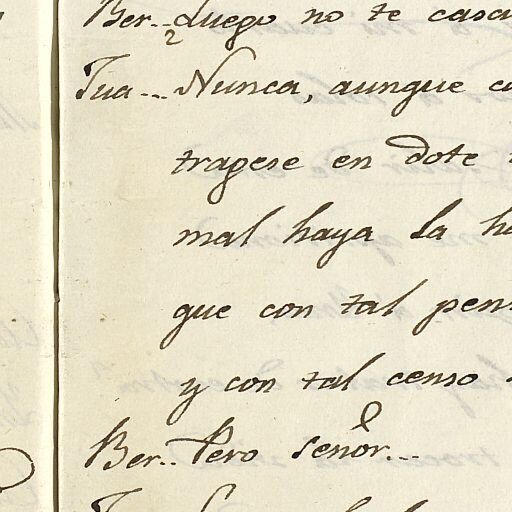 Ber.. Luego no te casa
Jua... Nunca, aunque c
tragese en dote
mal haya la h
que con tal pen
y con tal censo
Ber.. Pero señor...